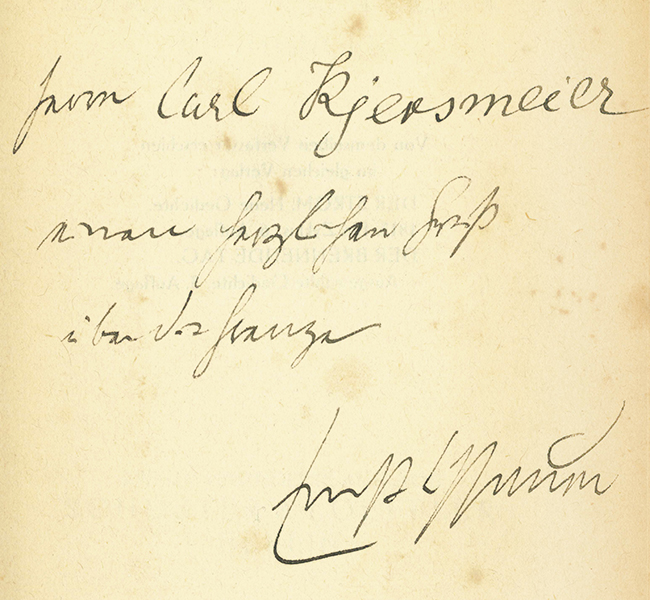 Herrn Carl Kjersmeier
einen herzlichen Gruß
über die Grenze
Ernst Lissauer